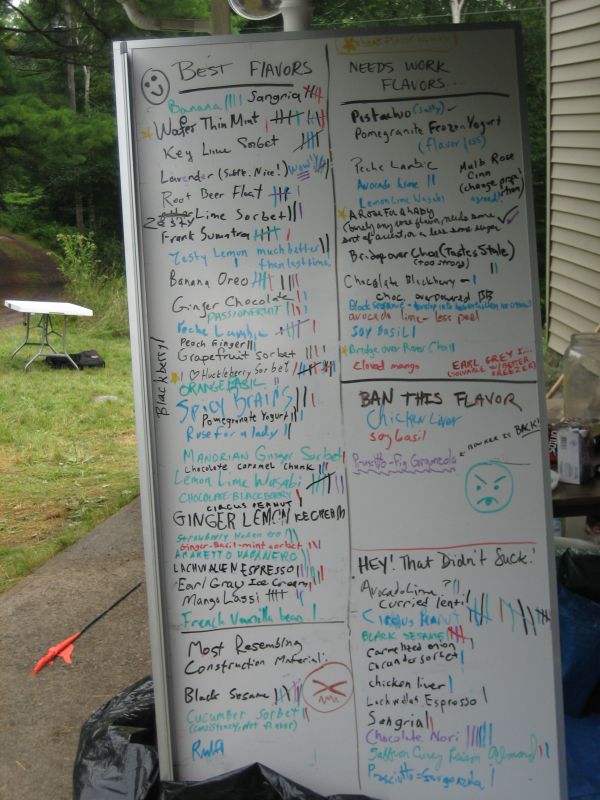 BEST FLAVORS
Banana
Sangria
Wafer Thin Mint
Key Lime Sorbet
Lavender (Subtle. Nice!) Wow!
Root Beer Float
Zesty Lime Sorbet
Frank Sumatra
Zesty Lemon much better
than last time.
Banana Oreo
Ginger Chocolate
PASSIONFRUIT
Peche Lambic
Peach Ginger
Grapefruit sorbet
I ♡ Huckleberry Sorbet
ORANGE BASIL
SPICY BRAINS
Pomegranate Yogurt
Rose for a lady
MANDRIAN Ginger Sorbet
Chocolate caramel chunk
Lemon Lime Wasabi
CHOCOLATE BLACKBERRY
CIRCUS PEANUT
GINGER LEMON ICE CREAM
Ginger-Basil-mint sorbet
AMARETTO HABANERO
LACHWALLEN ESPRESSO
Earl Gray Ice Cream
Mango Lassi
French Vanilla bean
Blackberry!
Most Resembling
Construction Material:
Black Sesame
Cucumber Sorbet
(consistency, not flavor)
NEEDS WORK
FLAVORS...
Pistachio (salty)
Pomegranite Frozen Yogurt
(flavor less)
Peche Lambic
Avocado lime
Lemon Lime Wasabi
Malb Rose
Cinn
(change propo
rtion)
agreed!
A ROSE FOR A LADY
Bridge over Chai (Tastes Stale)
(too strong)
Chocolate Blackberry -
choc. overpowered BB
avocado lime - less peel
SOY BASIL
Bridge over River Chai
cloved mango
EARL GREY I...
(SOLVABLE W/BETTER
FREEZER)
BAN THIS FLAVOR
Chicken Liver
soy basil
Prusciutto-Fig Gorgonzola
BOWKER IS BACK!
HEY! That Didn't Suck!
Avocado Lime?
curried lentil
CIRCUS PEANUT
BLACK SESAME
Carmelized onion
Coriander sorbet
chicken liver
Lachwallen Espresso
Sangria
Chocolate Nori
Saffron Curry Raisin Almond
Prusciutto-gorgonzola